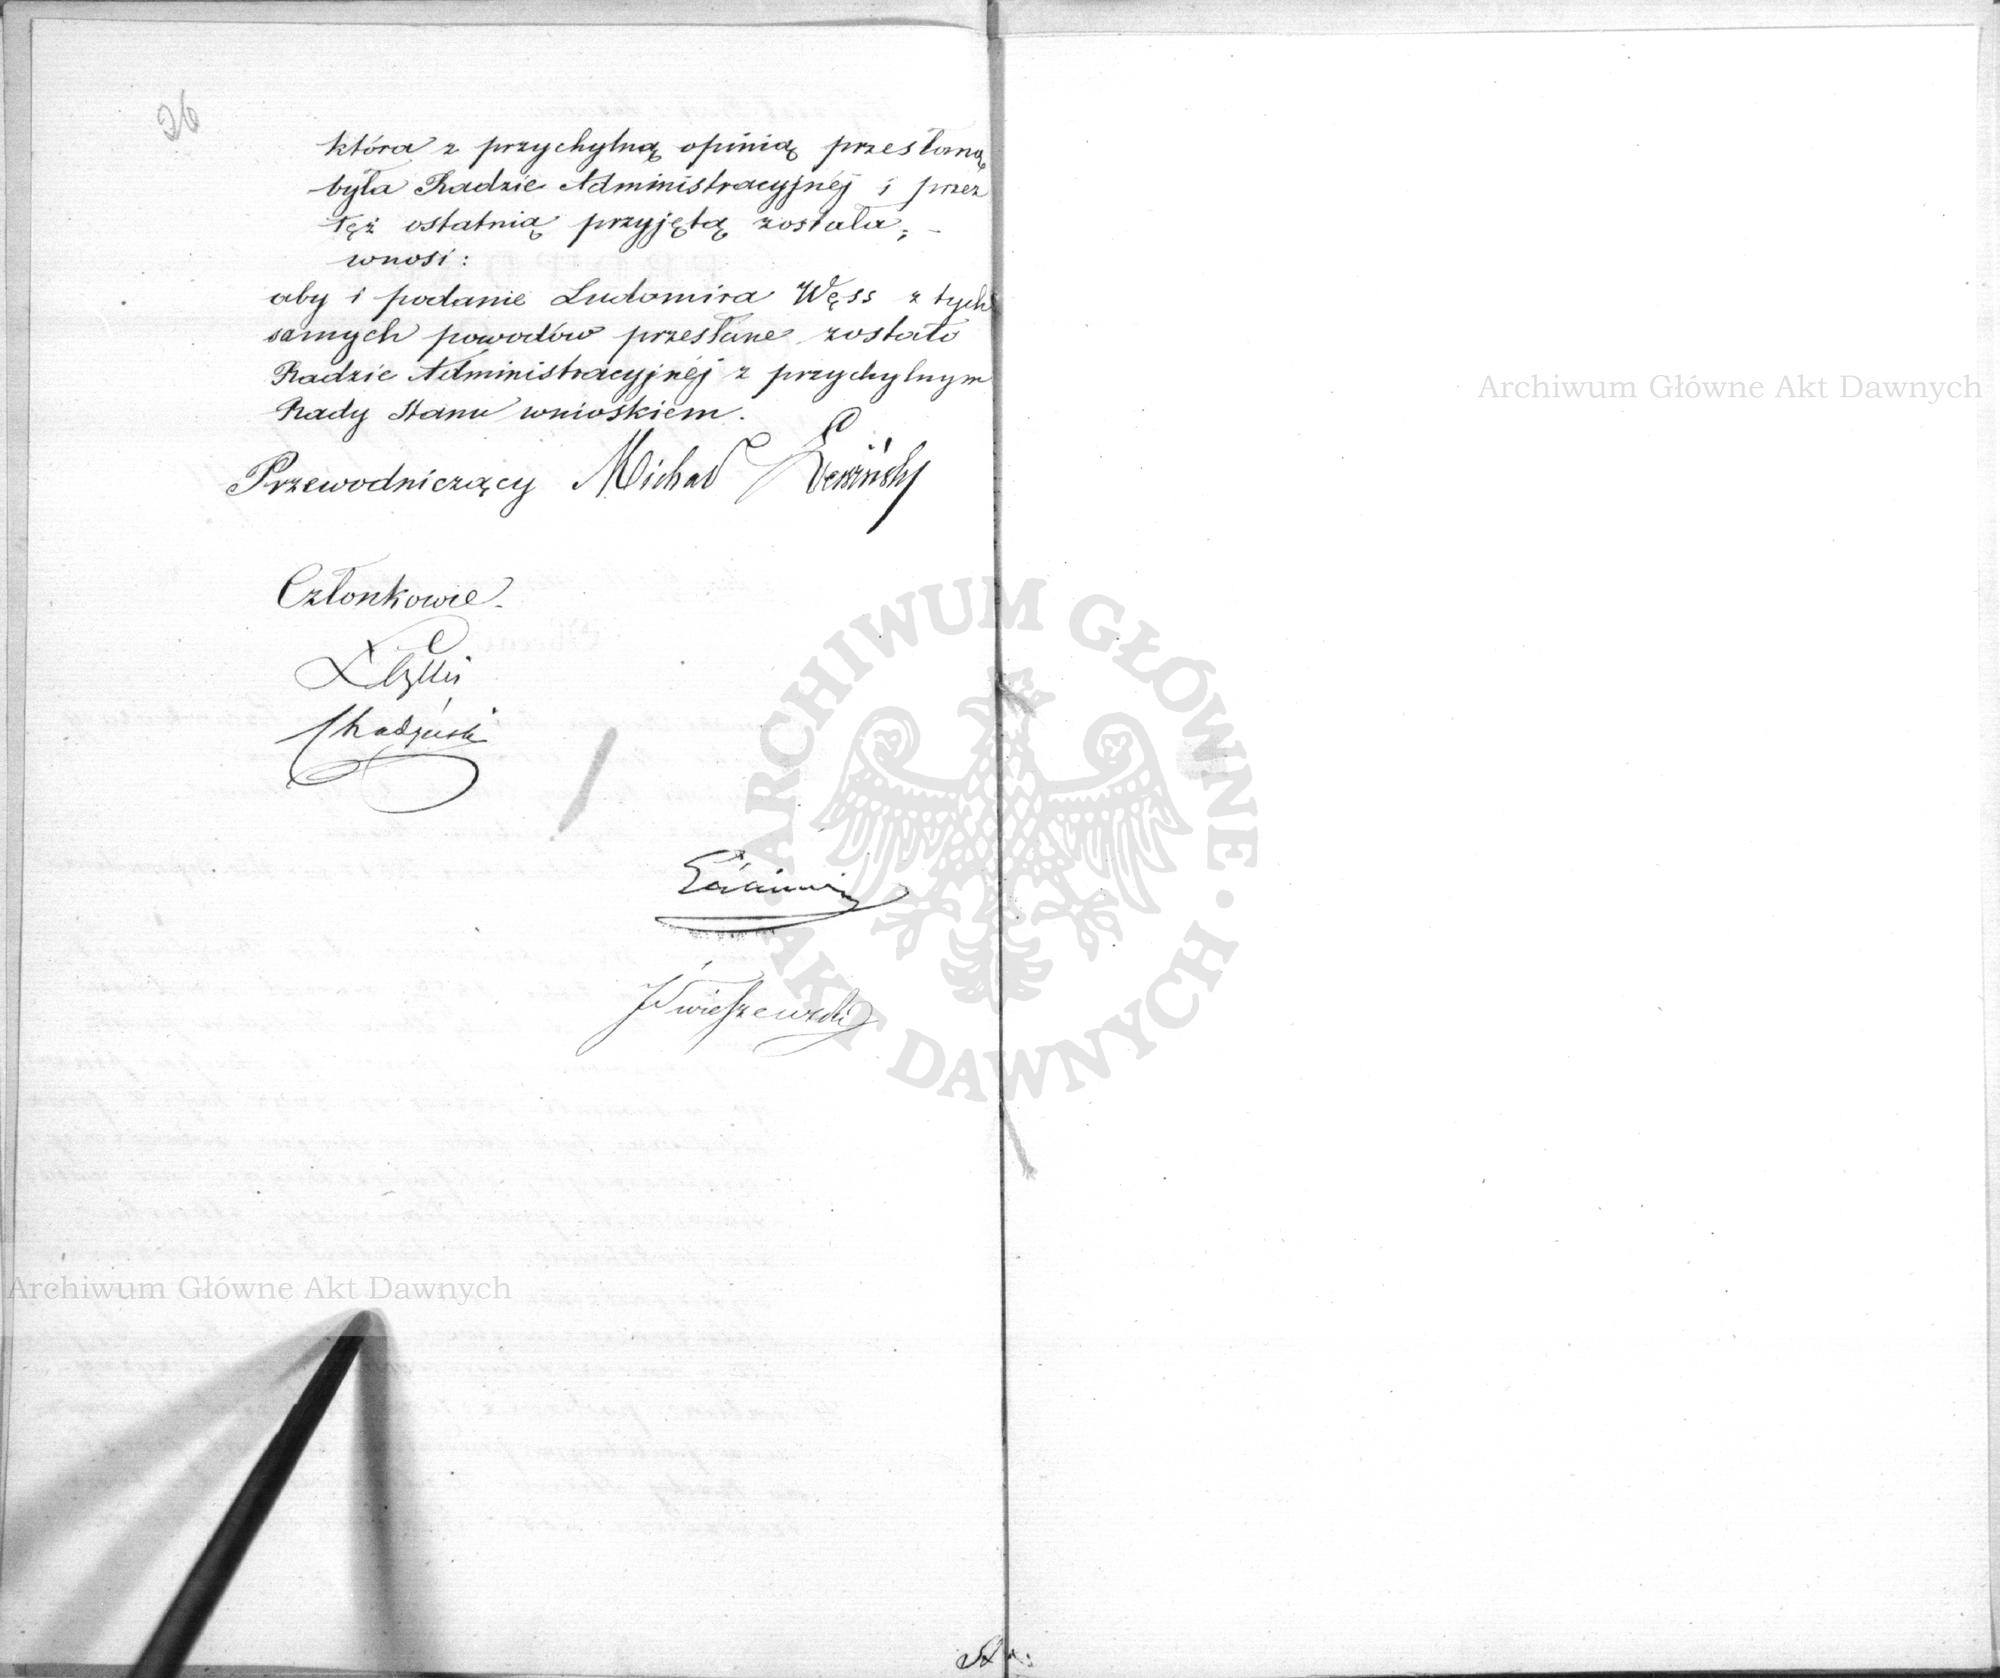 26
która z przychylną opinią przesłaną
była Radzie Administracyjnéj i przez
tęż ostatnią przyjętą została; -
wnosi:
aby i podanie Ludomira Węss z tych
samych powodów przesłane zostało
Radzie Administracyjnéj z przychylnym
Rady Stanu wnioskiem.
Przewodniczący Michał
Członkowie.
Archiwum Główne Akt Dawnych
ARCHIWUM GŁÓWNE
AKT DAWNYCH
Archiwum Główne Akt Dawnych